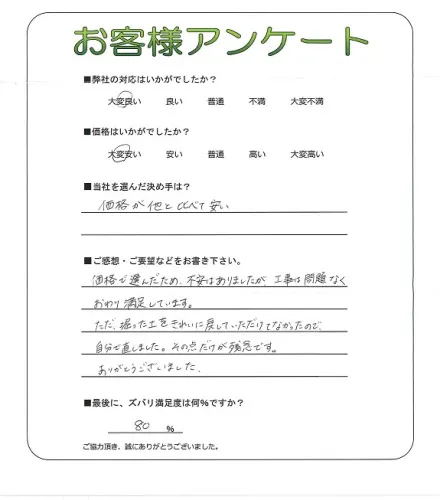 お客様アンケート
■弊社の対応はいかがでしたか？
大変良い　良い　普通　不満　大変不満
■価格はいかがでしたか？
大変安い　安い　普通　高い　大変高い
■当社を選んだ決め手は？
価格が他と比べて安い
■ご感想・ご要望などをお書き下さい。
価格で選んだため、不安はありましたが、工事は問題なく
おわり満足しています。
ただ、掘った土をきれいに戻していただけてなかったので、
自分で直しました。その点だけが残念です。
ありがとうございました。
■最後に、ズバリ満足度は何%ですか？
80 %
ご協力頂き、誠にありがとうございました。